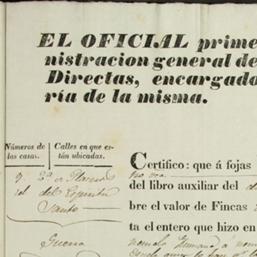 EL OFICIAL prime
nistracion general de
Directas, encargado
ría de la misma.
Números de
las casas.
Calles en que es-
tán ubicadas.
9.
del Espíritu
Santo
Guerra
Certifico: que á fojas
del libro auxiliar del
bre el valor de Fincas
ta el entero que hizo en